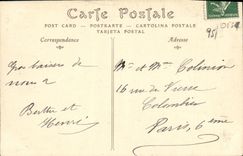 Carte Postale
POST CARD - POSTKARTE - CARTOLINA POSTALE
TARJETA POSTAL
Correspondance
Adresse
95/
Bons baisers de
nous 2
Berthe et
Henri
Mr et Mme
16 rue du Vieux
Colombier
Paris, 6ème